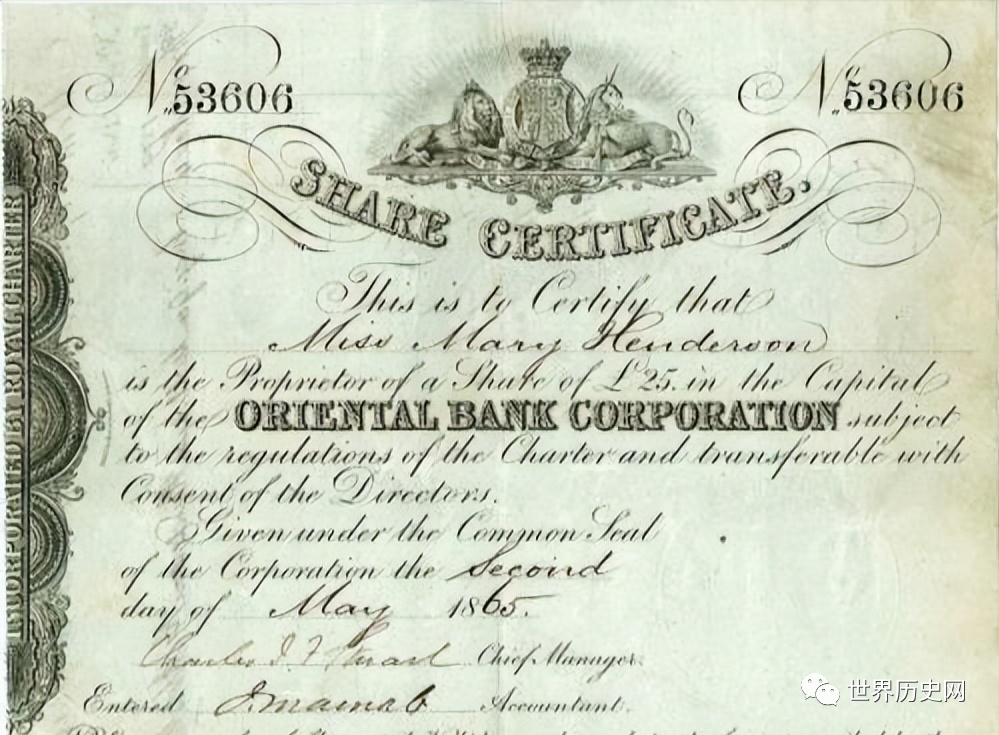 No 53606
No 53606
SHARE CERTIFICATE.
This is to Certify that
Miss Mary Henderson
is the Proprietor of a Share of £25. in the Capital
of the ORIENTAL BANK CORPORATION subject
to the regulations of the Charter and transferable with
Consent of the Directors.
Given under the Common Seal
of the Corporation the Second
day of May 1865.
Charles J F Stuart Chief Manager.
Entered Accountant.
INCORPORATED BY ROYAL CHARTER
世界历史网